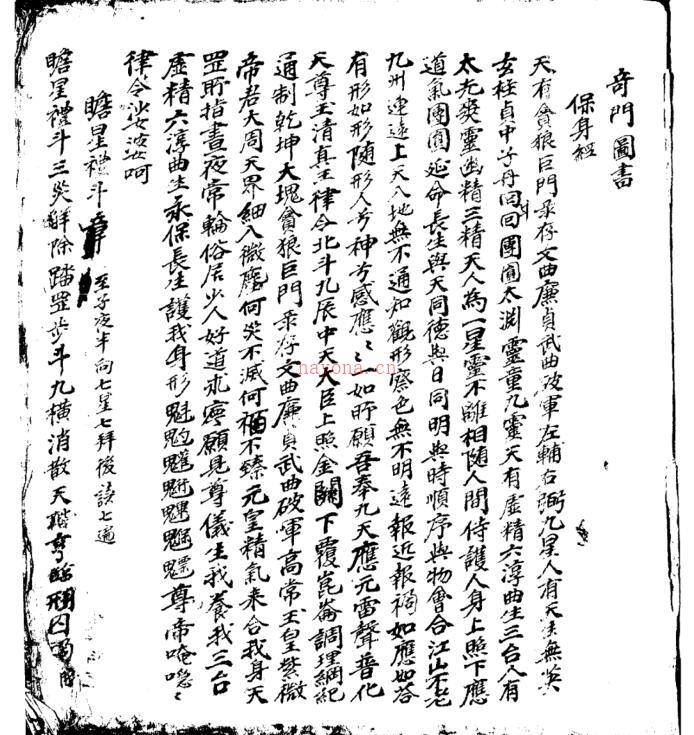 奇門圖書
保身經
天有貪狼巨門祿存文曲廉貞武曲破軍左輔右弼九星人有天生無英
玄柱貞中子丹回回團圓太淵靈童九靈天有虛精六淳曲生三台人有
太光爽靈幽精三精天人為一星靈不離相随人間侍護人身上照下應
道氣團圓延命長生與天同德與日同明與時順序與物會合江山不老
九州連遠上天入地無不通知觀形察色無不明遠報近報禍如應如答
有形如形随形人兮神兮感應〻〻一如所願吾奉九天應元雷聲普化
天尊玉清真王律令北斗九辰中天大臣上照金闕下覆崑崙調理綱紀
通制乾坤大塊貪狼巨門祿存文曲廉貞武曲破軍高常玉皇紫微
帝君大周天界細入微塵何災不滅何福不臻元皇精氣來合我身天
罡所指晝夜常輪俗居少人好道求寧願見尊儀生我養我三台
虛精六淳曲生永保長生護我身形魁䰢䰱魓䰣尊帝唵
律令娑婆呵
瞻星禮斗 至子夜半向七星七拜後誦七遍
瞻星禮斗三災解除踏罡步斗九橫消散天
nayona.cn